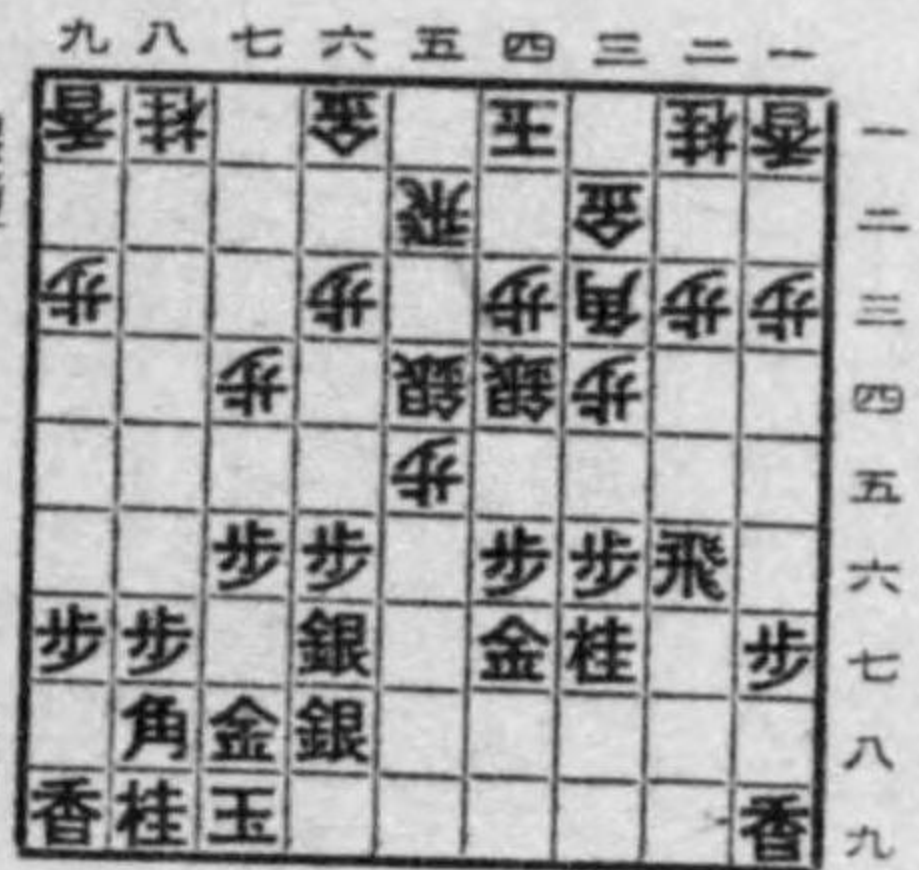 九 八 七 六 五 四 三 二 一
香 桂 金 玉 桂 香 一
飛 金 二
歩 歩 歩 角 歩 歩 三
歩 銀 銀 歩 四
歩 五
歩 歩 歩 歩 飛 六
歩 歩 銀 金 桂 歩 七
角 金 銀 八
香 桂 玉 香 九